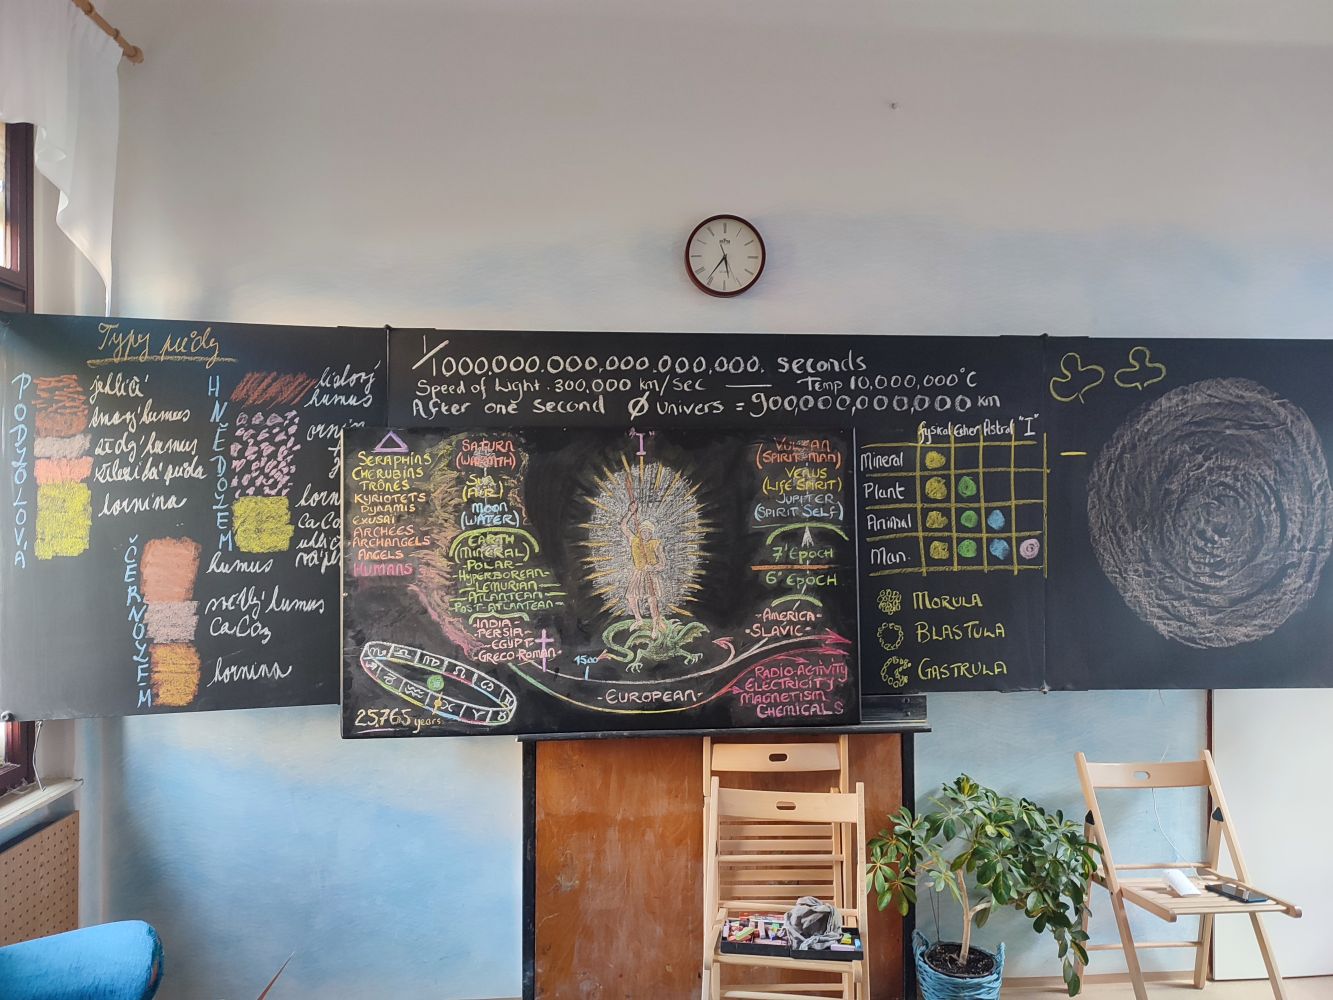 Typy půdy
PODZOLOVÁ
jehličí
tmavý humus
šedý humus
hornina
HNĚDOZEM
listový
humus
horn
CaCo
ČERNOZEM
humus
světlý humus
CaCo3
hornina
1/1000,000.000,000.000,000,000. seconds
Speed of Light. 300,000 km/sec — Temp 10,000,000°C
After one second Ø Univers = 900,000,000,000 km
SERAPHINS
CHERUBINS
TRÔNES
KYRIOTETS
DYNAMIS
EXUSAI
ARCHÉES
ARCHANGELS
ANGELS
HUMANS
SATURN
(WARMTH)
SUN
(AIR)
MOON
(WATER)
EARTH
(MINERAL)
-POLAR-
-HYPERBOREAN-
-LEMURIAN-
-ATLANTEAN-
POST-ATLANTEAN-
-INDIA-
-PERSIA-
-EGYPT-
-GRECO-ROMAN-
25,765 years
"I"
1500
-EUROPEAN-
VULCAN
(SPIRIT-MAN)
VENUS
(LIFE SPIRIT)
JUPITER
(SPIRIT SELF)
7' EPOCH
6' EPOCH
-AMERICA-
-SLAVIC-
RADIO-ACTIVITY
ELECTRICITY
MAGNETISM
CHEMICALS
fysical Ether Astral "I"
Mineral
Plant
Animal
Man.
MORULA
BLASTULA
GASTRULA